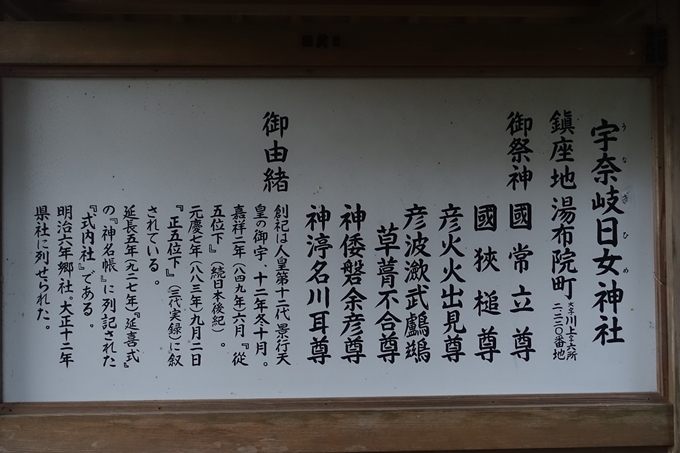 宇奈岐日女神社
うなぎひめ
鎮座地 湯布院町 大字川上字六所
二二三〇番地
御祭神 國常立尊
國狭槌尊
彦火火出見尊
彦波瀲武鸕鷀
草葺不合尊
神倭磐余彦尊
神渟名川耳尊
御由緒
創祀は人皇第十二代 景行天
皇の御宇 十二年冬十月。
嘉祥二年（八四九年）六月『従
五位下』（続日本後紀）。
元慶七年（八八三年）九月二日
『正五位下』（三代実録）に叙
されている。
延長五年（九二七年）『延喜式』
の『神名帳』に列記された
『式内社』である。
明治六年郷社。大正十二年
県社に列せられた。